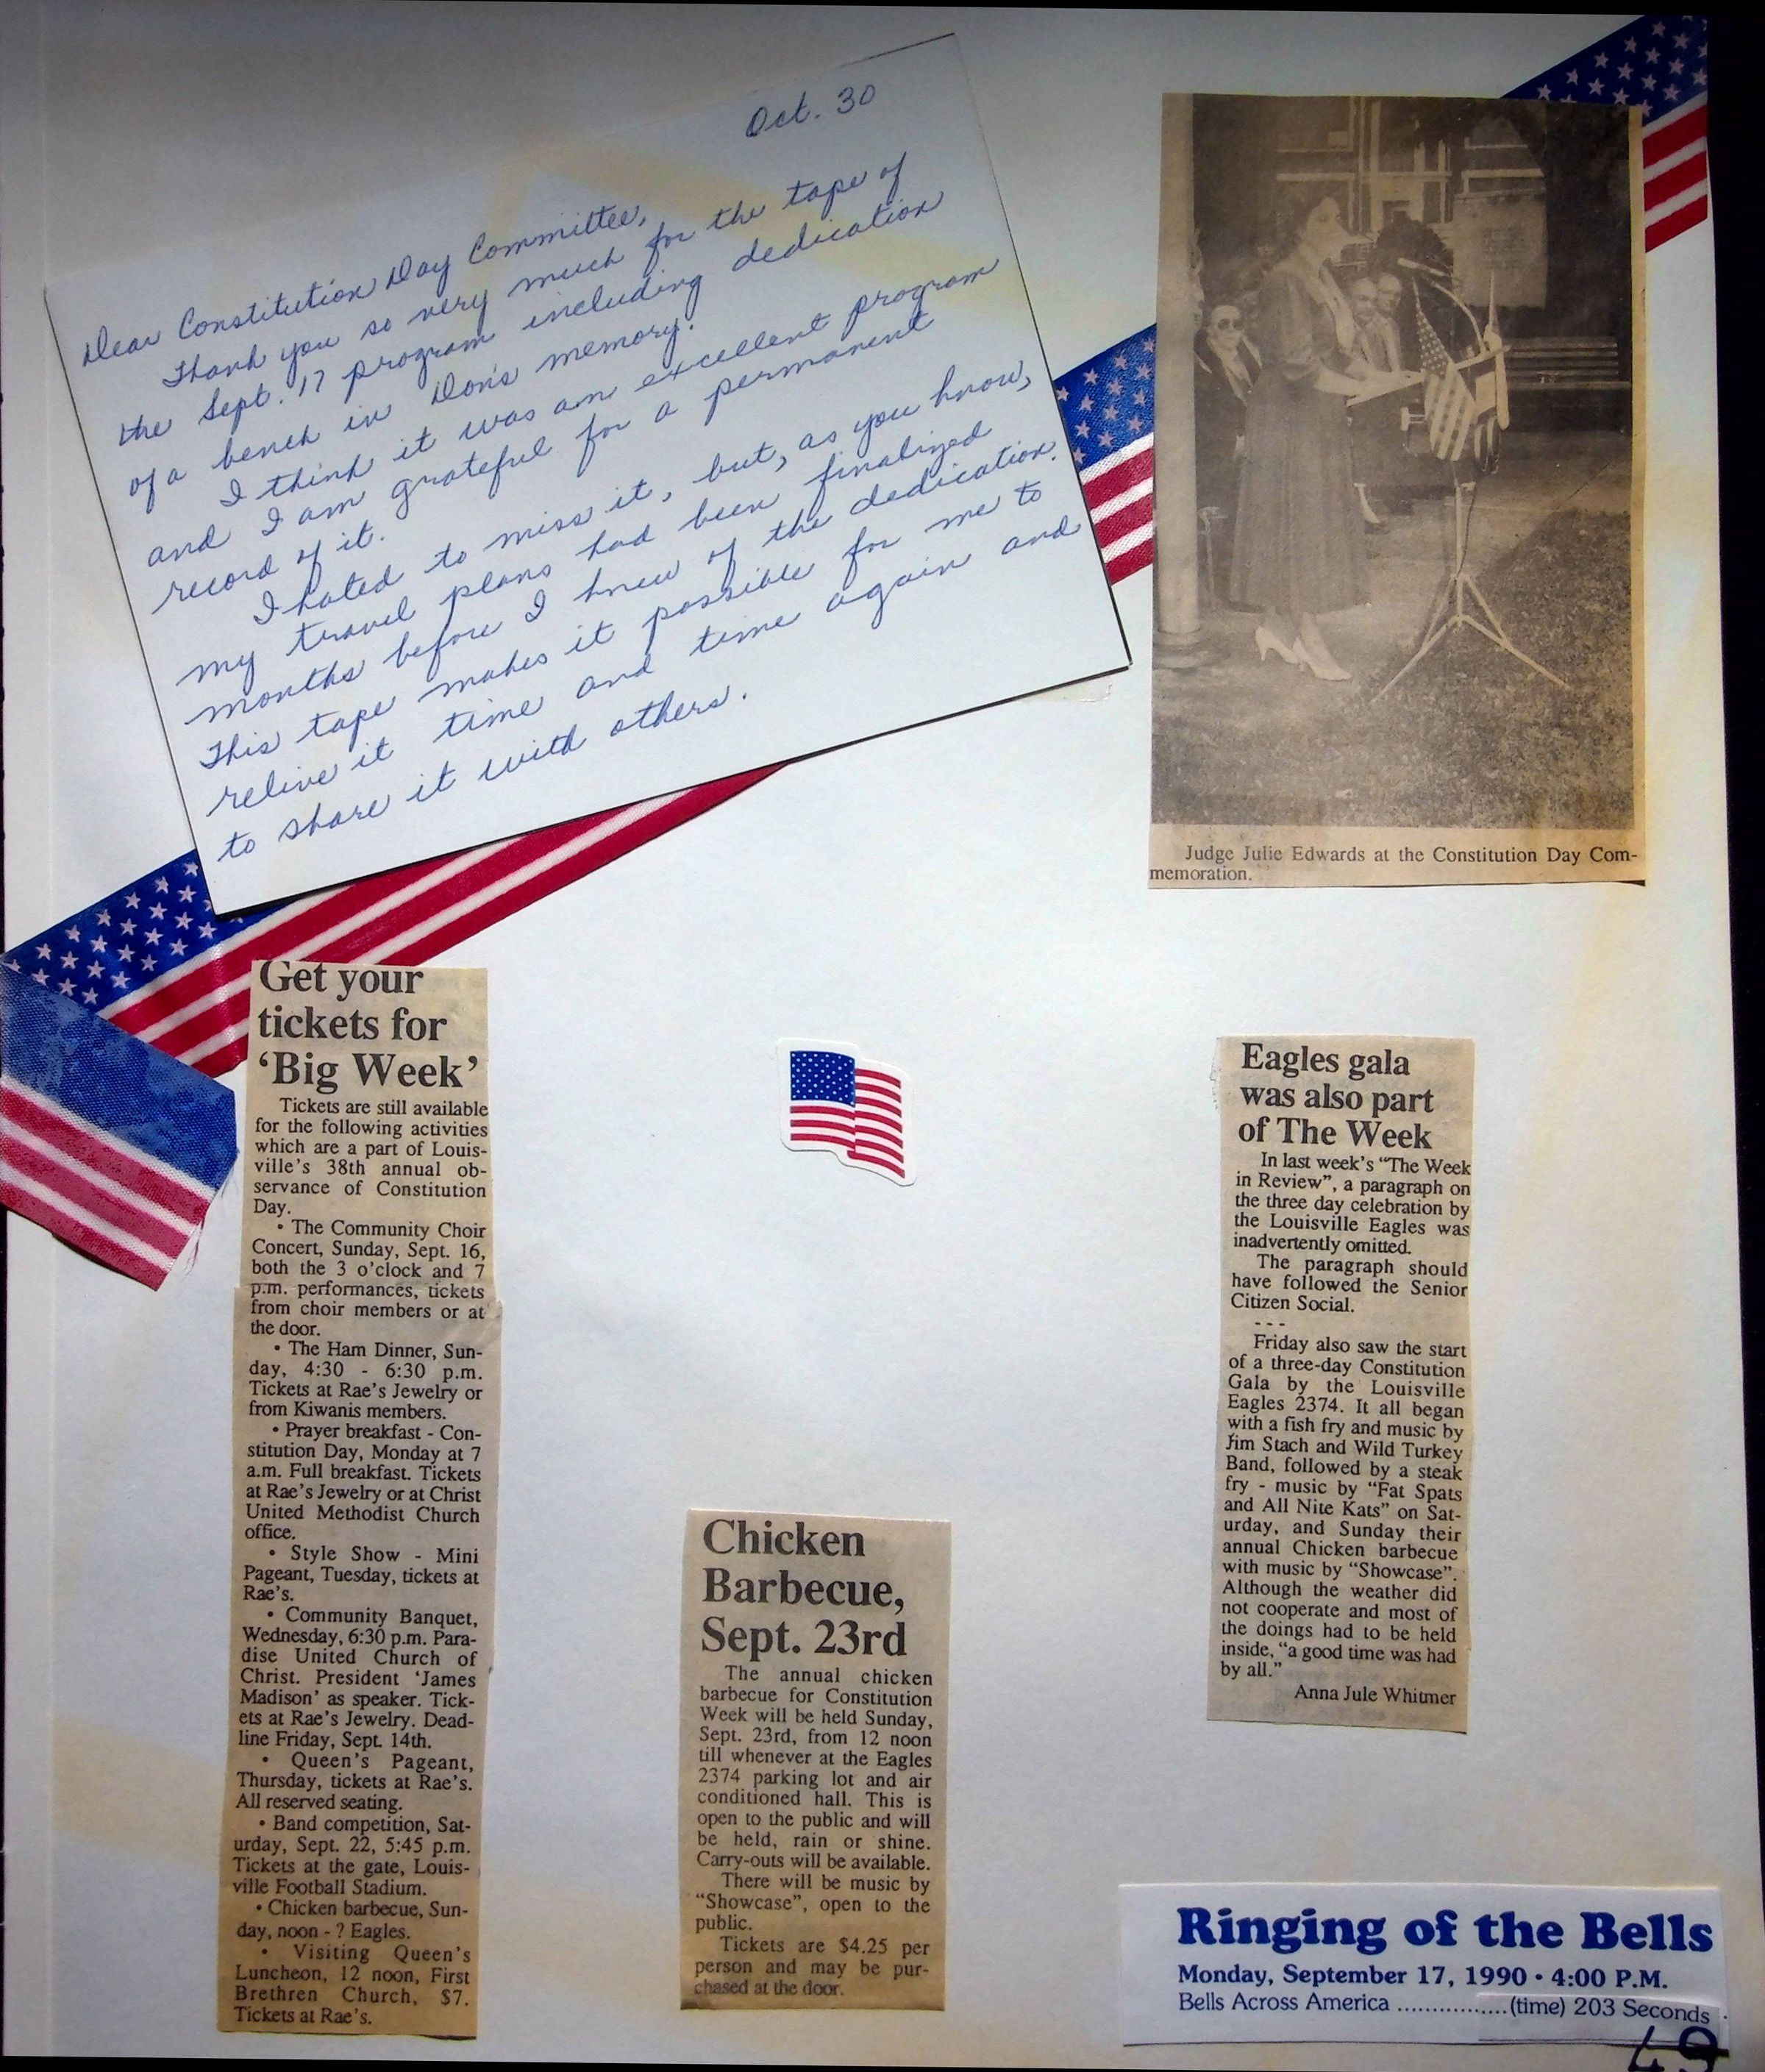 Oct. 30
Dear Constitution Day Committee,
Thank you so very much for the tape of
the Sept. 17 program including dedication
of a bench in Don's memory.
I think it was an excellent program
and I am grateful for a permanent
record of it.
I hated to miss it, but, as you know,
my travel plans had been finalized
months before I knew of the dedication.
This tape makes it possible for me to
relive it time and time again and
to share it with others.
Judge Julie Edwards at the Constitution Day Com-
memoration.
Get your
tickets for
‘Big Week’
Tickets are still available
for the following activities
which are a part of Louis-
ville's 38th annual ob-
servance of Constitution
Day.
• The Community Choir
Concert, Sunday, Sept. 16,
both the 3 o'clock and 7
p.m. performances, tickets
from choir members or at
the door.
• The Ham Dinner, Sun-
day, 4:30 - 6:30 p.m.
Tickets at Rae's Jewelry or
from Kiwanis members.
• Prayer breakfast - Con-
stitution Day, Monday at 7
a.m. Full breakfast. Tickets
at Rae's Jewelry or at Christ
United Methodist Church
office.
• Style Show - Mini
Pageant, Tuesday, tickets at
Rae's.
• Community Banquet,
Wednesday, 6:30 p.m. Para-
dise United Church of
Christ. President ‘James
Madison’ as speaker. Tick-
ets at Rae's Jewelry. Dead-
line Friday, Sept. 14th.
• Queen's Pageant,
Thursday, tickets at Rae's.
All reserved seating.
• Band competition, Sat-
urday, Sept. 22, 5:45 p.m.
Tickets at the gate, Louis-
ville Football Stadium.
• Chicken barbecue, Sun-
day, noon - ? Eagles.
• Visiting Queen's
Luncheon, 12 noon, First
Brethren Church, $7.
Tickets at Rae's.
Chicken
Barbecue,
Sept. 23rd
The annual chicken
barbecue for Constitution
Week will be held Sunday,
Sept. 23rd, from 12 noon
till whenever at the Eagles
2374 parking lot and air
conditioned hall. This is
open to the public and will
be held, rain or shine.
Carry-outs will be available.
There will be music by
“Showcase”, open to the
public.
Tickets are $4.25 per
person and may be pur-
chased at the door.
Eagles gala
was also part
of The Week
In last week's “The Week
in Review”, a paragraph on
the three day celebration by
the Louisville Eagles was
inadvertently omitted.
The paragraph should
have followed the Senior
Citizen Social.
- - -
Friday also saw the start
of a three-day Constitution
Gala by the Louisville
Eagles 2374. It all began
with a fish fry and music by
Jim Stach and Wild Turkey
Band, followed by a steak
fry - music by “Fat Spats
and All Nite Kats” on Sat-
urday, and Sunday their
annual Chicken barbecue
with music by “Showcase”.
Although the weather did
not cooperate and most of
the doings had to be held
inside, “a good time was had
by all.”
Anna Jule Whitmer
Ringing of the Bells
Monday, September 17, 1990 • 4:00 P.M.
Bells Across America ................(time) 203 Seconds
49